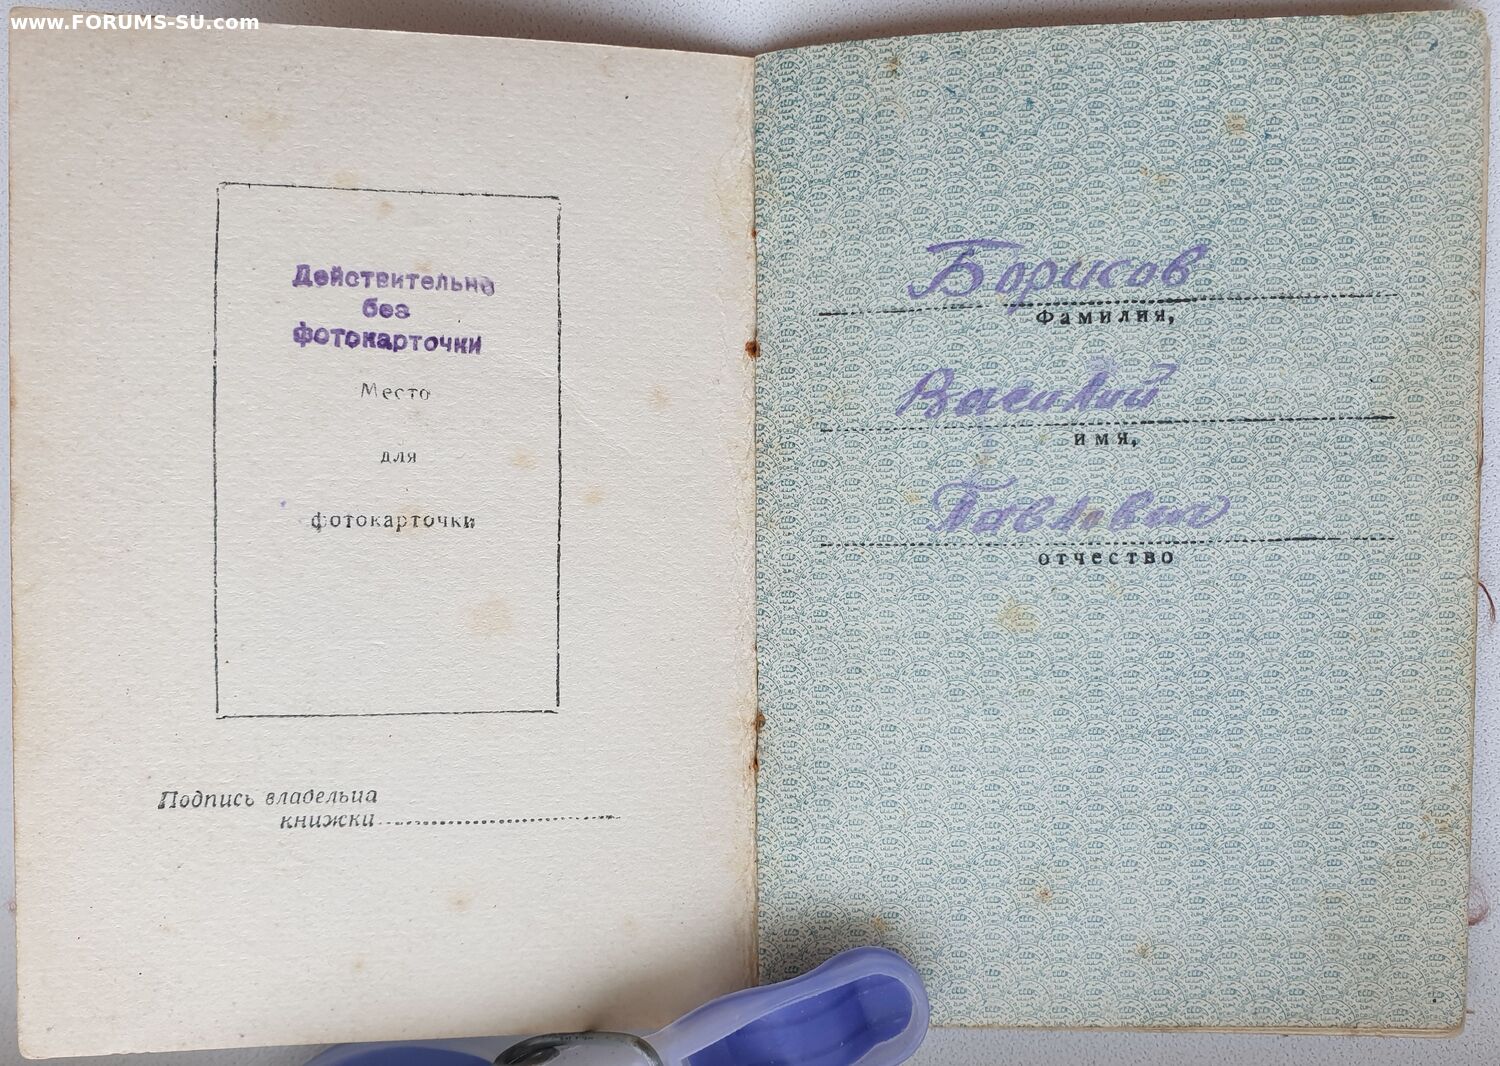 www.FORUMS-SU.com
Действительно
без
фотокарточки
Место
для
фотокарточки
Подпись владельца
книжки
Борисов
Фамилия,
Василий
имя,
Павлович
отчество